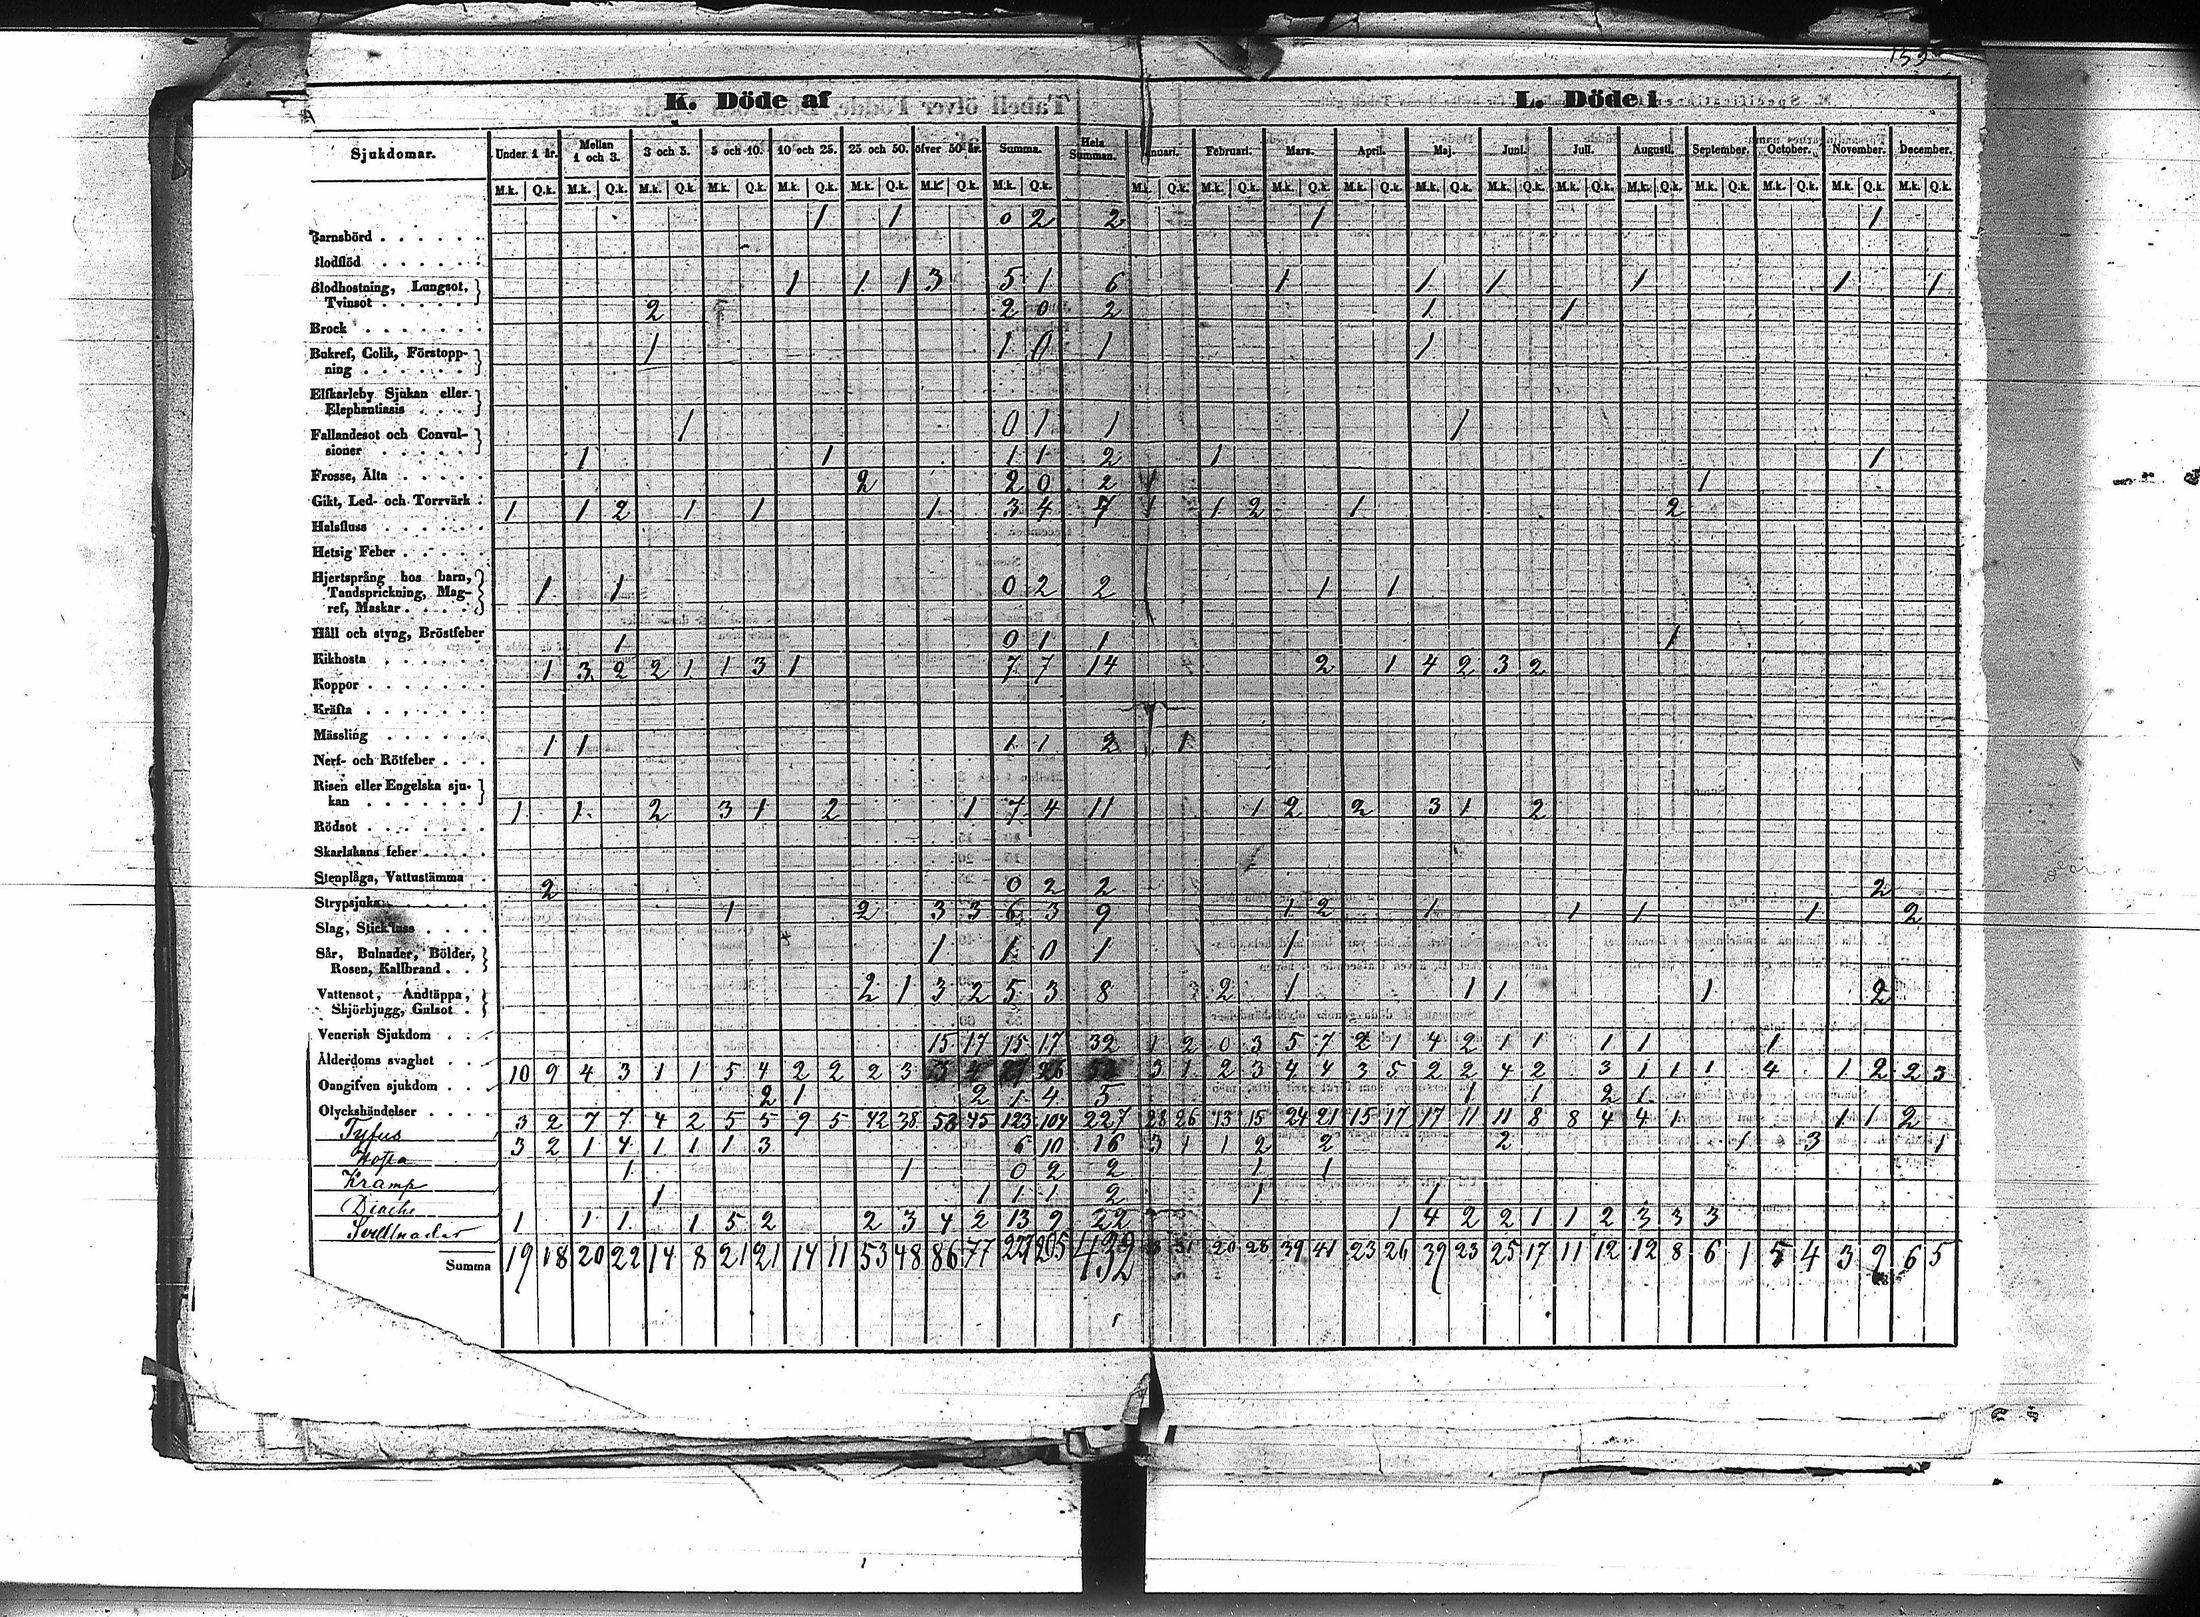 153
K. Döde af
L. Döde i
Sjukdomar. Under 1 år. Mellan 1 och 3. 3 och 5. 5 och 10. 10 och 25. 25 och 50. öfver 50 år. Summa. Hela Summan. Januari. Februari. Mars. April. Maj. Juni. Juli. Augusti. September. October. November. December.
M.k. Q.k. M.k. Q.k. M.k. Q.k. M.k. Q.k. M.k. Q.k. M.k. Q.k. M.k. Q.k. M.k. Q.k. M.k. Q.k. M.k. Q.k. M.k. Q.k. M.k. Q.k. M.k. Q.k. M.k. Q.k. M.k. Q.k. M.k. Q.k. M.k. Q.k. M.k. Q.k. M.k. Q.k. M.k. Q.k.
1 1 0 2 2 1 1
Barnsbörd
Blodflöd
1 1 1 3 5 1 6 1 1 1 1 1 1
Blodhostning, Lungsot,
Tvinsot
2 2 0 2 1 1
Brock
1 1 0 1 1
Bukref, Colik, Förstopp-
ning
Elfkarleby Sjukan eller
Elephantiasis
1 0 1 1 1
Fallandesot och Convul-
sioner
1 1 1 1 2 1 1
Frosse, Älta
2 2 0 2 1 1
Gikt, Led- och Torrvärk
1 1 2 1 1 1 3 4 7 1 1 2 1 2
Halsfluss
Hetsig Feber
Hjertsprång hos barn,
Tandsprickning, Mag-
ref, Maskar
1 1 0 2 2 1 1
Håll och styng, Bröstfeber
1 0 1 1 1
Kikhosta
1 3 2 2 1 1 3 1 7 7 14 2 1 4 2 3 2
Koppor
Kräfta
Mässling
1 1 1 1 2 1
Nerf- och Rötfeber
Risen eller Engelska sju-
kan
1 1 2 3 1 2 1 7 4 11 1 2 2 3 1 2
Rödsot
Skarlakans feber
Stenplåga, Vattustämma
2 0 2 2 2
Strypsjuka
1 2 3 3 6 3 9 1 2 1 1 1 1 2
Slag, Stickfluss
1 1 0 1 1
Sår, Bulnader, Bölder,
Rosen, Kallbrand
2 1 3 2 5 3 8 2 1 1 1 1 2
Vattensot, Andtäppa,
Skjörbjugg, Gulsot
Venerisk Sjukdom
15 17 15 17 32 1 2 0 3 5 7 2 1 4 2 1 1 1 1 1
Ålderdoms svaghet
10 9 4 3 1 1 5 4 2 2 2 3 3 1 2 3 4 4 3 5 2 2 4 2 3 1 1 1 4 1 2 2 3
Oangifven sjukdom
2 1 2 1 4 5 1 1 2 1
Olyckshändelser
3 2 7 7 4 2 5 5 9 5 42 38 53 45 123 104 227 28 26 13 15 24 21 15 17 17 11 11 8 8 4 4 1 1 1 2
Tyfus
3 2 1 4 1 1 1 3 6 10 16 3 1 1 2 2 2 1 3 1
Hosta
1 1 0 2 2 1 1
Kramp
1 1 1 1 2 1 1
1 1 1 1 5 2 2 3 4 2 13 9 22 1 4 2 2 1 1 2 3 3 3
Summa 19 18 20 22 14 8 21 21 14 11 53 48 86 77 227 205 432 31 20 28 39 41 23 26 39 23 25 17 11 12 12 8 6 1 5 4 3 9 6 5